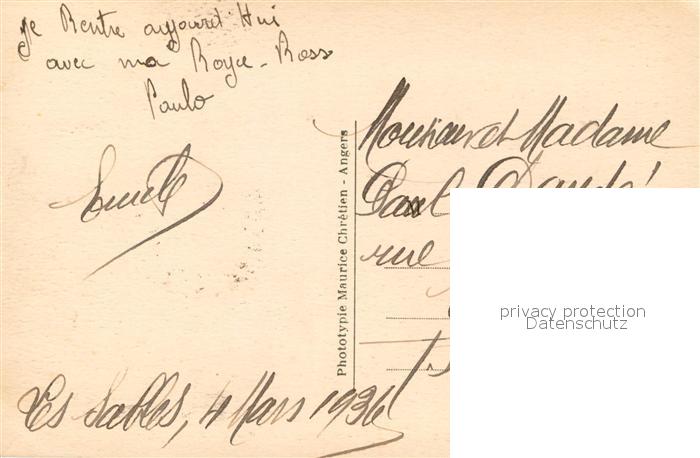 Je Rentre aujouret Hui
avec ma Royce-Ross
Paulo
Phototypie Maurice Chrétien - Angers
Monsieur et Madame
Paul
rue
privacy protection
Datenschutz
Les Sables, 4 Mars 1936